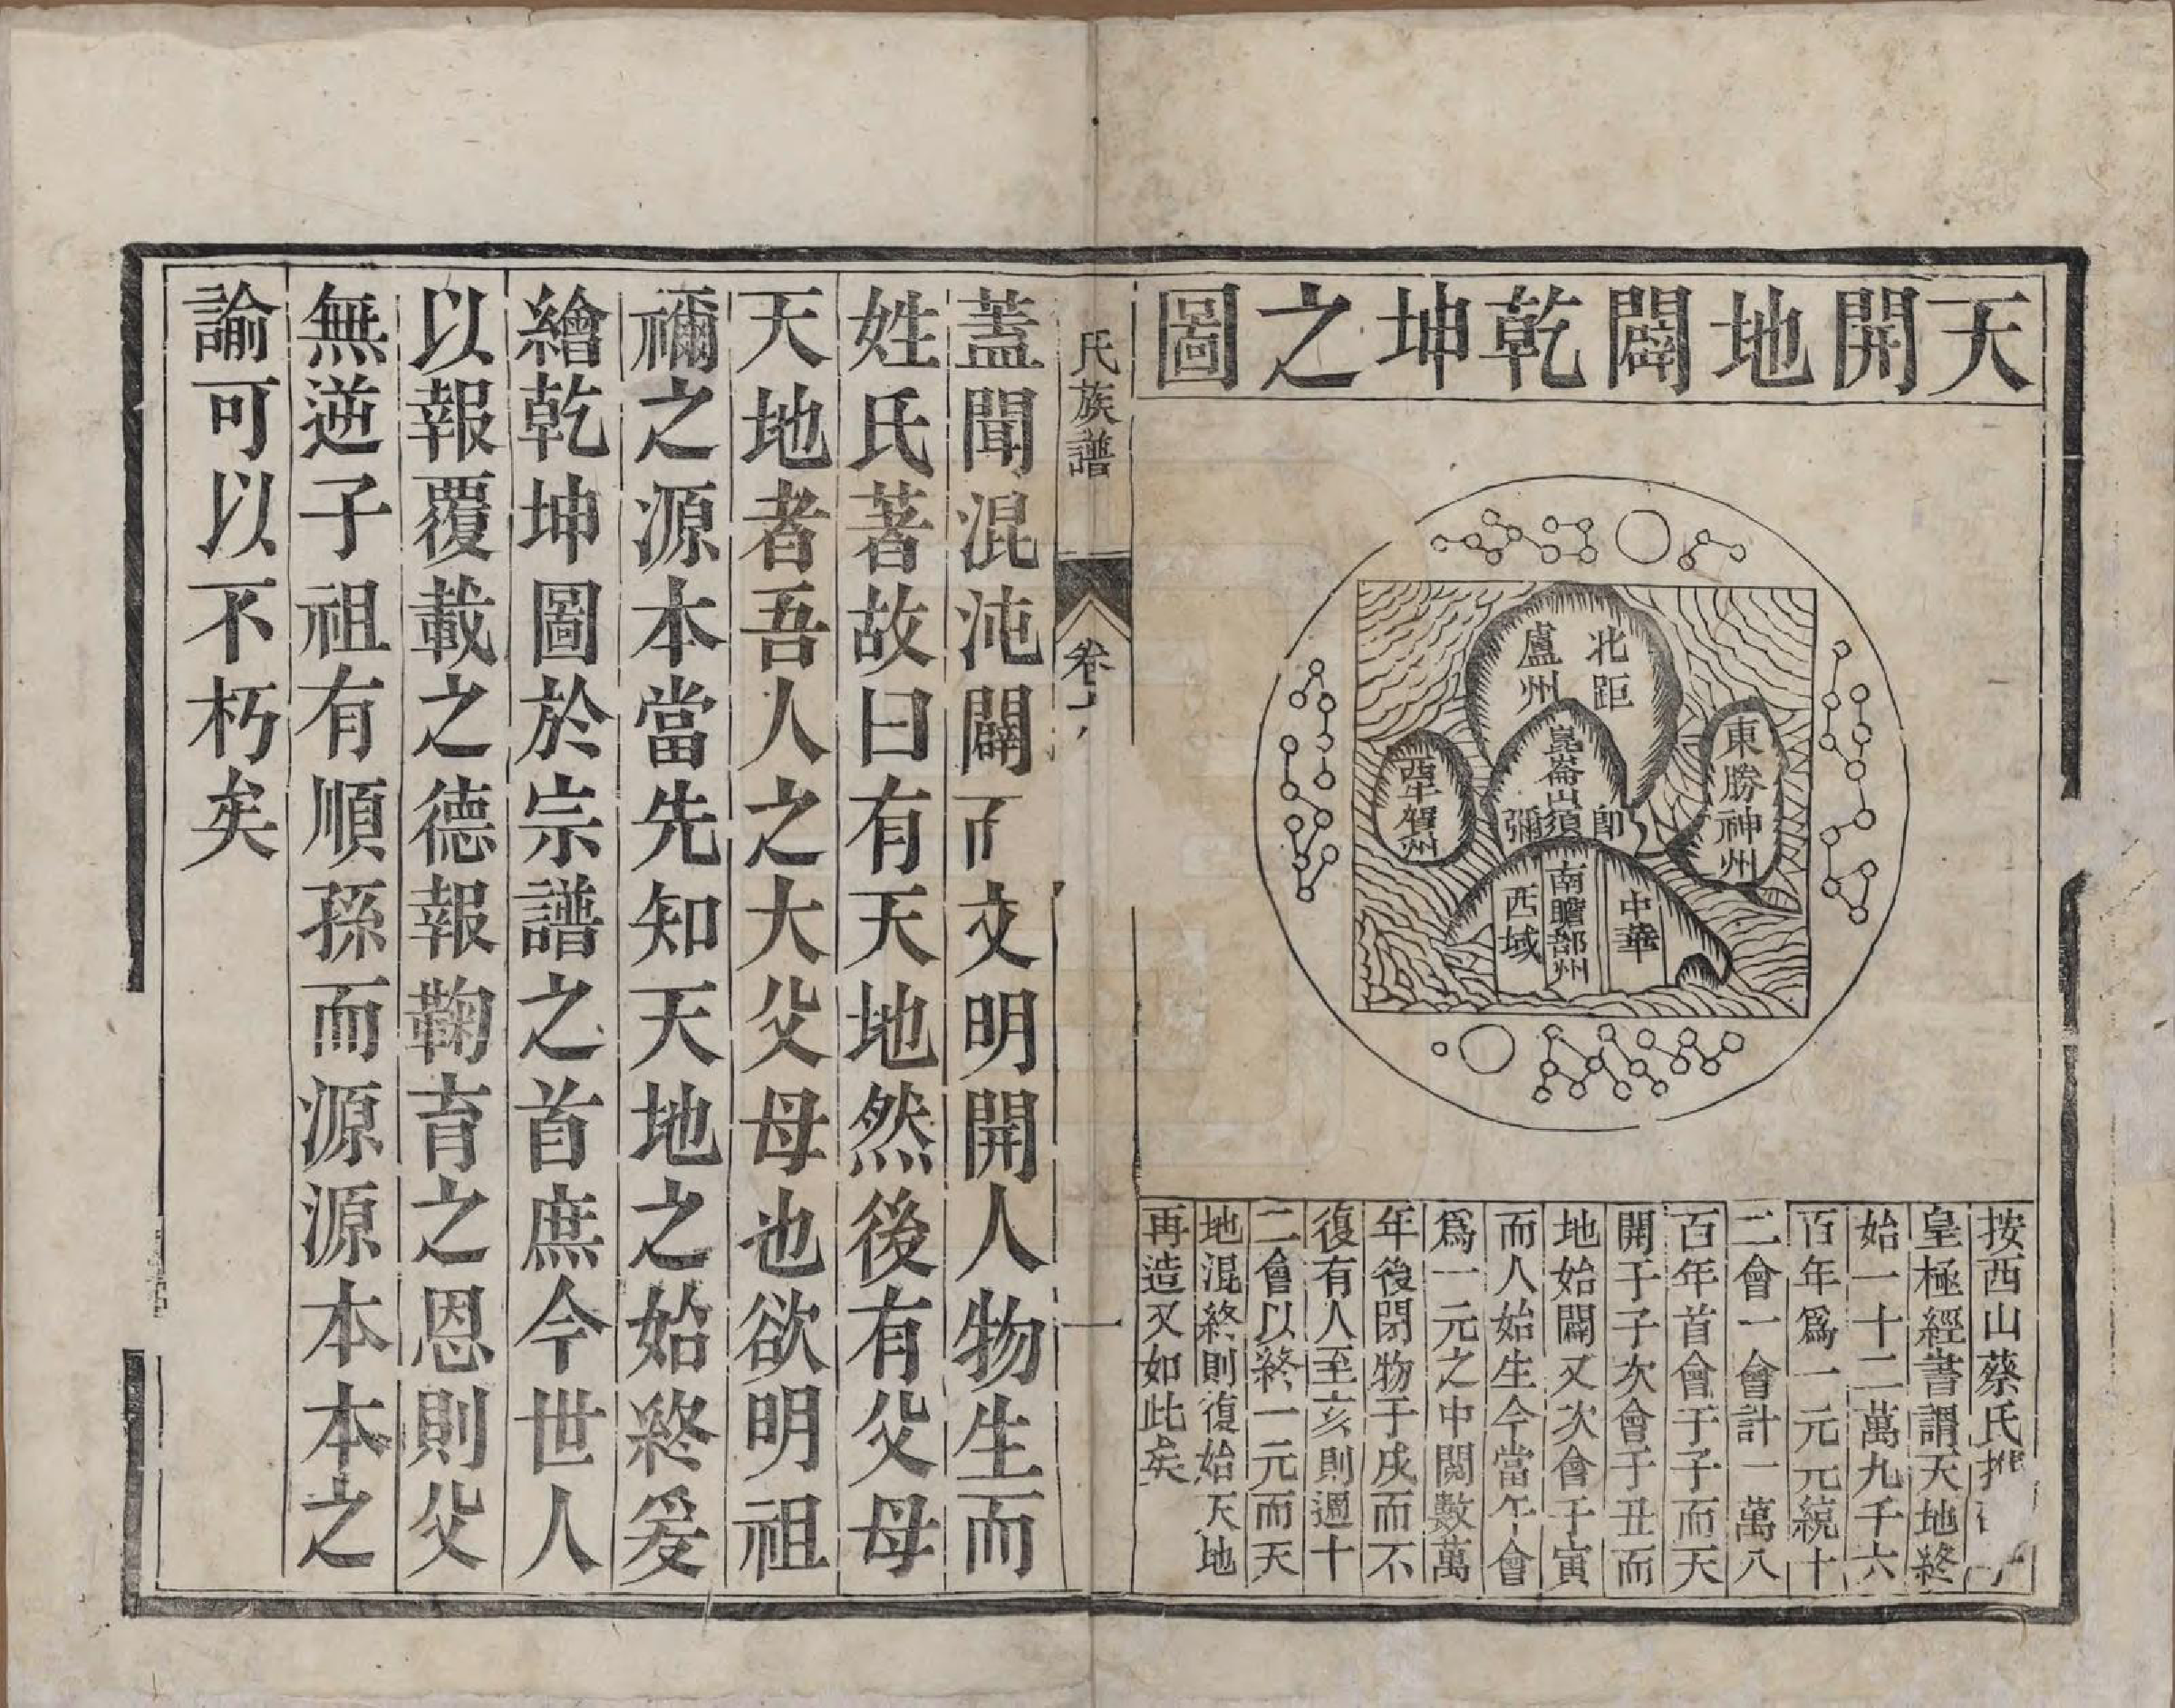 天開地闢乾坤之圖
北距
盧州
東勝神州
崑崙山須
即
彌
西牛賀州
中華
南瞻部州
西域
按西山蔡氏推
皇極經書謂天地終
始一十二萬九千六
百年爲一元元統十
二會一會計一萬八
百年首會于子而天
開于子次會于丑而
地始闢又次會于寅
而人始生今當午會
爲一元之中閱數萬
年後閉物于戌而不
復有人至亥則週十
二會以終一元而天
地混終則復始天地
再造又如此矣
氏族譜
卷
一
蓋聞混沌闢而文明開人物生而
姓氏著故曰有天地然後有父母
天地者吾人之大父母也欲明祖
禰之源本當先知天地之始終爰
繪乾坤圖於宗譜之首庶今世人
以報覆載之德報鞠育之恩則父
無逆子祖有順孫而源源本本之
諭可以不朽矣